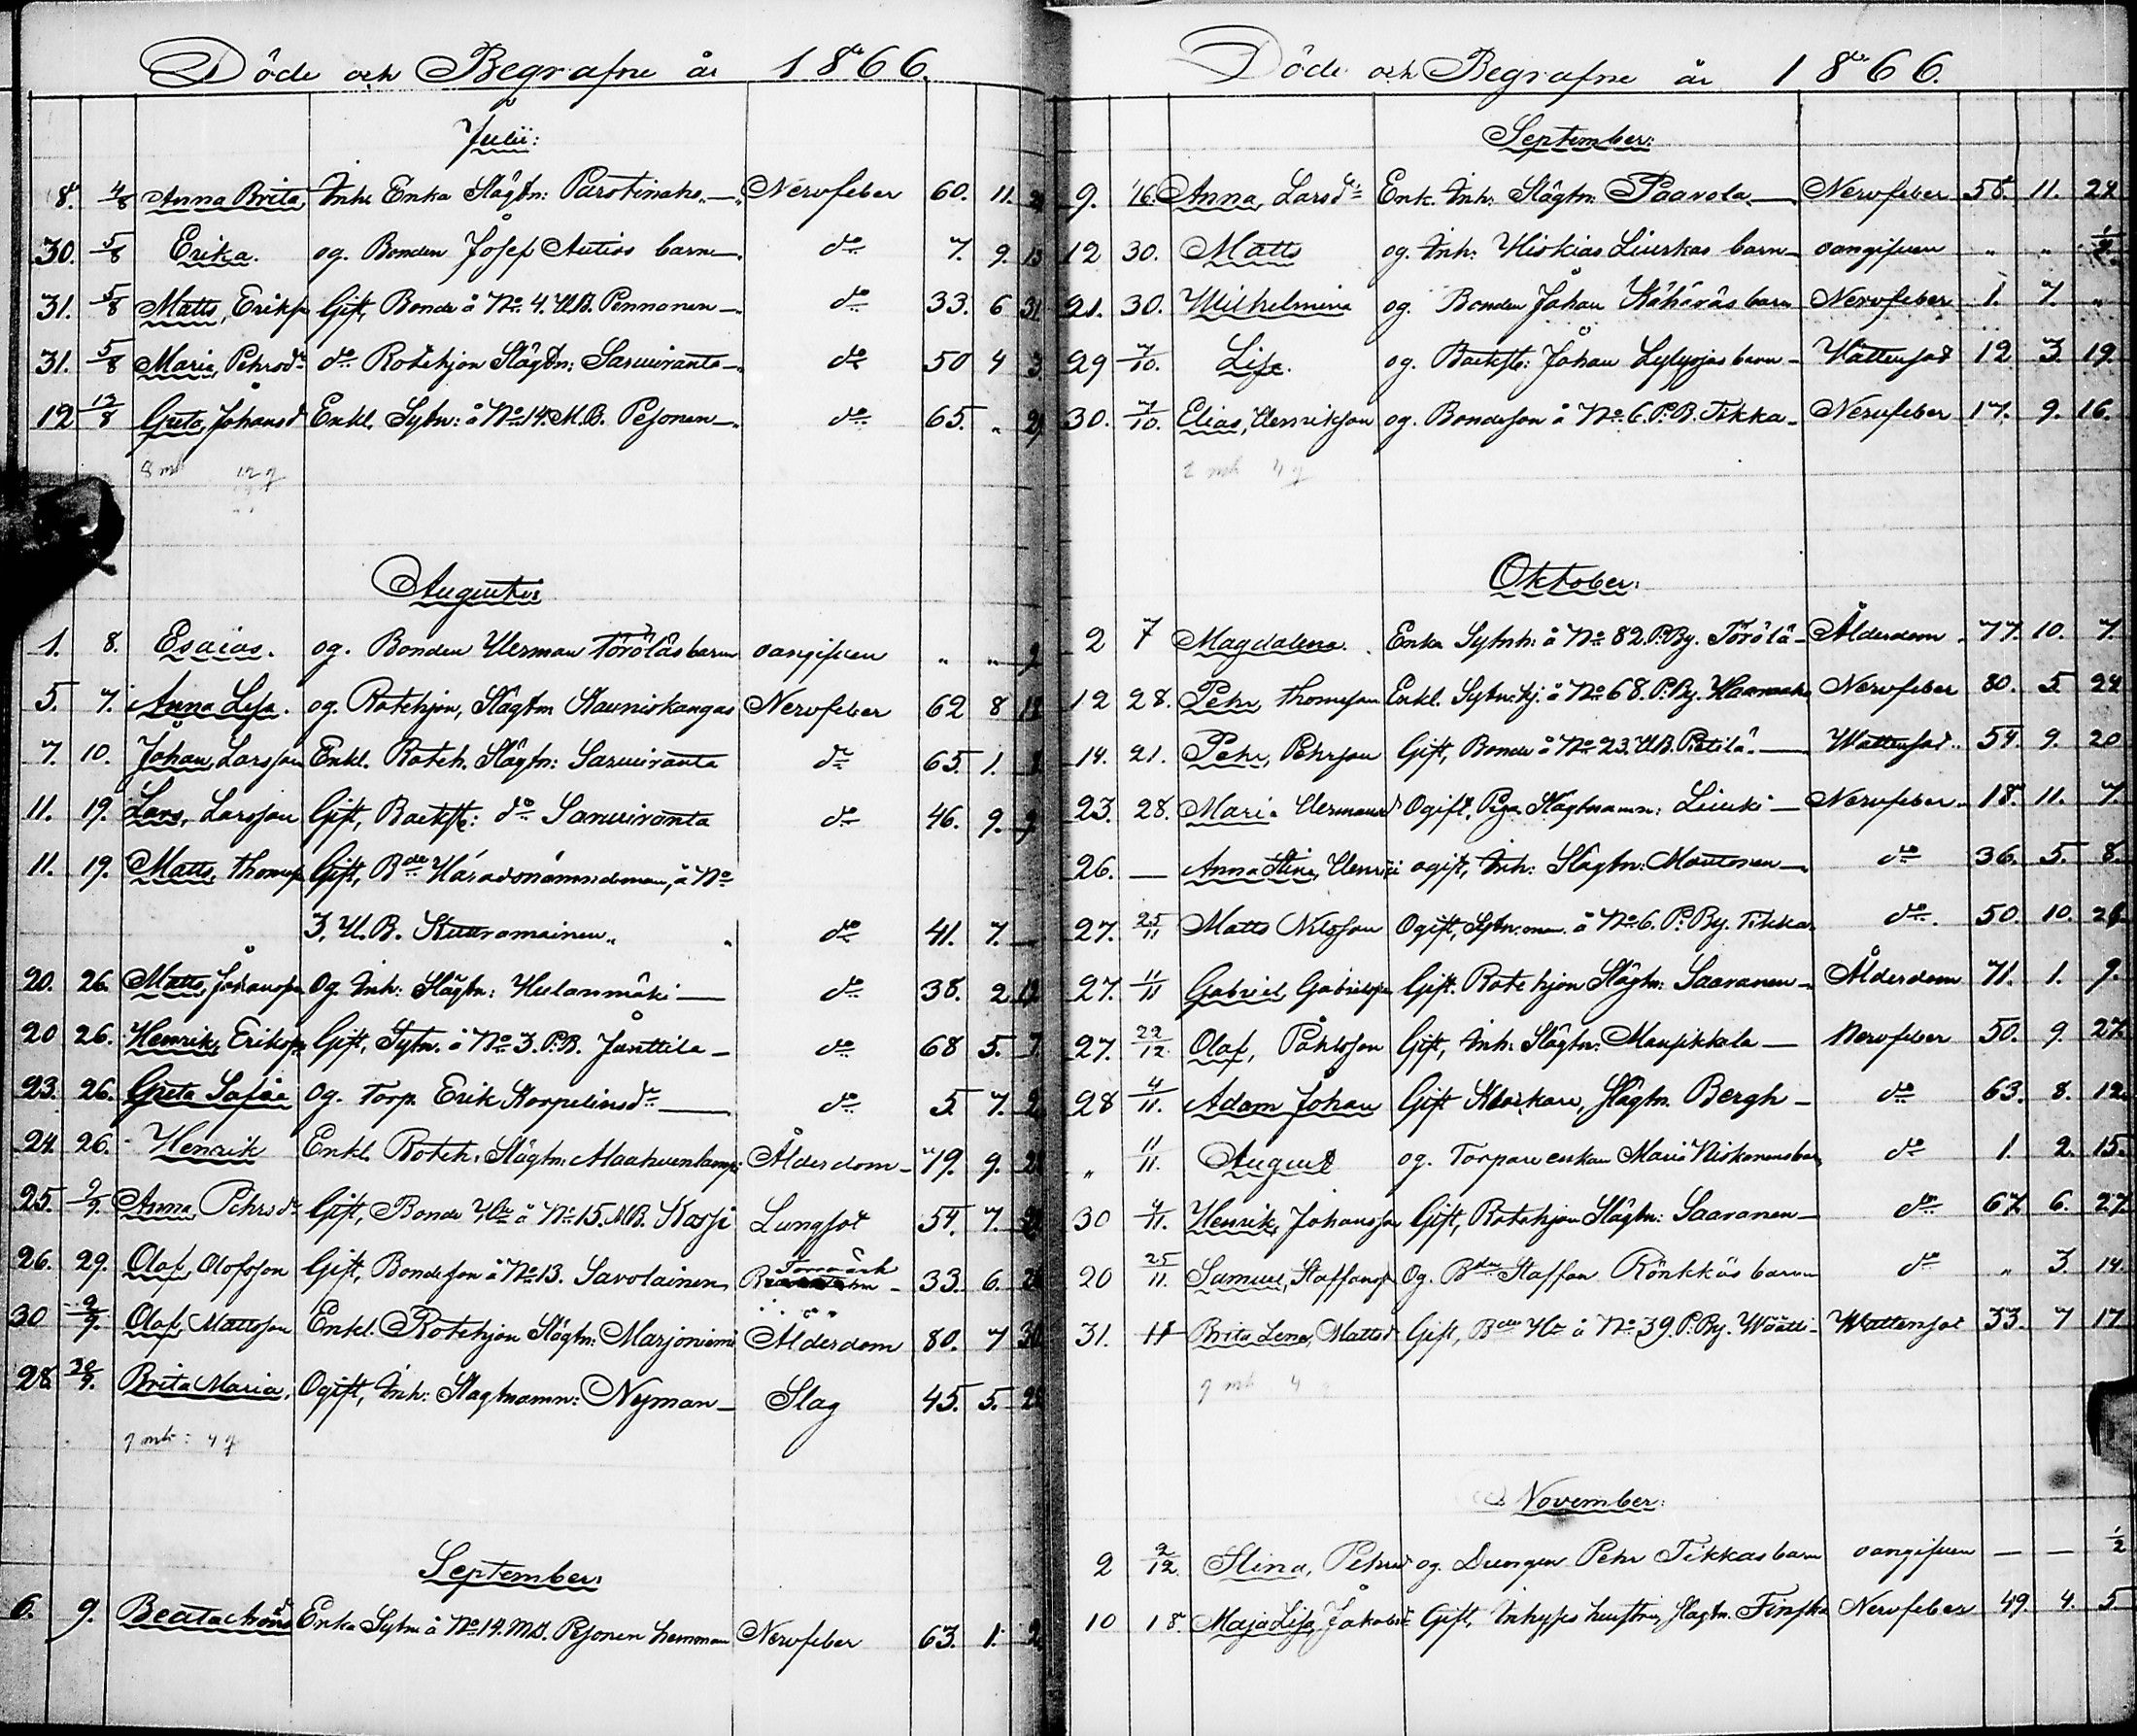 Döde och Begrafne år 1866.
Julii:
8. 4/8 Anna Brita, Inh. Enka Slägtn: Parotinaho Nervfeber 60. 11.
30. 5/8 Erika. og. Bonden Josef Autios barn d:o 7. 9. 13
31. 5/8 Matts, Eriksn Gift, Bonde å No 4. U.B. Pennanen d:o 33. 6 31
31. 5/8 Maria Pehrsdr d:o Rotehjon Slägtn: Sarwiranta d:o 50 4 3.
12 12/8 Greta, Johansd Enkl. Sytn: å No 14. M.B. Pesonen d:o 65. "
8 mk 12 q
Augusti:
1. 8. Esaias. og. Bonden Herman Töröläs barn oangifven " "
5. 7. Anna Lisa. og. Rotehjon, Slägtn Kauniskangas Nervfeber 62 8
7. 10. Johan Larsson Enkl. Roteh. Slägtn: Sarwiranta d:o 65. 1.
11. 19. Lars, Larsson Gift, Backst: d:o Sarwiranta d:o 46. 9. 9
11. 19. Matts, Thomass Gift, Bde Häradsnämndeman, å No
3. U.B. Kuuramainen d:o 41. 7.
20. 26. Matts, Johansson Og. Inh: Slägtn: Hulanmäki d:o 38. 2
20 26. Henrik, Eriksn Gift, Sytn. å No 3. P.B. Jänttilä d:o 68 5. 7.
23. 26. Greta Sofia Og. Torp. Erik Korpelinsdr d:o 5. 7. 2
24. 26. Henrik Enkl. Roteh. Slägtn. Maahuenlampi Ålderdom 79. 9.
25. 2/9. Anna Pehrsdr Gift, Bonde Hu å No 15. M.B. Kossi Lungsot 54. 7.
26. 29. Olof, Olofsson Gift, Bondeson å No 13. Savolainen Torrvärk 33. 6.
30 2/9. Olof, Mattsson Enkl. Rotehjon Slägtn: Marjoniemi Ålderdom 80. 7 30
28. 30/9. Brita Maria, Ogift, Inh: Slagtnamn: Nyman Slag 45. 5.
9 mk: 4 q
September:
6. 9. Beata Enka Sytn å No 14. M.B. Pesonen hemman Nervfeber 63. 1.
Döde och Begrafne år 1866.
September:
9. 16. Anna, Larsdr Enk. Inh. Slägtn: Paavola Nervfeber 58. 11. 22
12 30. Matts og. Inh: Hiskias Liuskas barn oangifven " "
21. 30. Wilhelmina og. Bonden Johan Kähäräs barn Nervfeber 1. 7. "
29 7/10. Lisa. og. Backst: Johan Lylyojas barn Wattensot 12 3. 19.
30. 7/10. Elias, Henriksson og. Bondeson å No 6. P.B. Tikka Nervfeber 17. 9. 16.
2 mk 4 q
Oktober:
2 7 Magdalena. Enka Sytnh: å No 82. P. By. Törölä Ålderdom. 77. 10. 7.
12 28. Pehr Thomasson Enkl. Sytn.hj: å No 68. P. By. Nervfeber 80. 5 24
14. 21. Pehr, Pehrson Gift, Bonde å No 23. U.B. Pietilä. Wattensot 54. 9. 20
23. 28. Maria Hermansd Ogift, Piga Slägtnamn: Liuski Nervfeber 18. 11. 7.
26. — Anna Stina, Henriks ogift, Inh: Slägtn: Moutonen d:o 36. 5. 8.
27. 25/11 Matts Nilsson Ogift, Sytn.man å No 6. P. By. Tikka d:o. 50. 10. 26
27. 11/11 Gabriel Gabrielsn Gift. Rotehjon Slägtn: Saaranen Ålderdom 71. 1. 9.
27. 22/12. Olof, Påhlsson Gift, Inh. Slägtn: Mansikkala Nervfeber 50. 9. 27.
28 4/11. Adam Johan Gift Klockare, Slägtn. Bergh d:o 63. 8. 12
" 11/11. August og. Torpare enkan Maria Niskanens barn d:o 1. 2. 15.
30 4/11. Henrik, Johansson Gift, Rotehjon Slägtn: Saaranen d:o 67 6. 27.
20 25/11. Samuel, Staffanss Og. Bden Staffan Rönkkös barn d:o " 3. 14.
31. 11 Brita Lena, Mattsd Gift, Bde Hu å No 39. P. By. Wäätti Wattensot 33. 7 17
9 mk 4
November:
2 2/12. Stina, Pehrsd og. Drengen Pehr Tikkas barn oangifven — — 1/2
10 18. Maja Lisa, Jakobsdr Gift, Inhyses hustru, Slagtn. Finska Nervfeber 49 4. 5